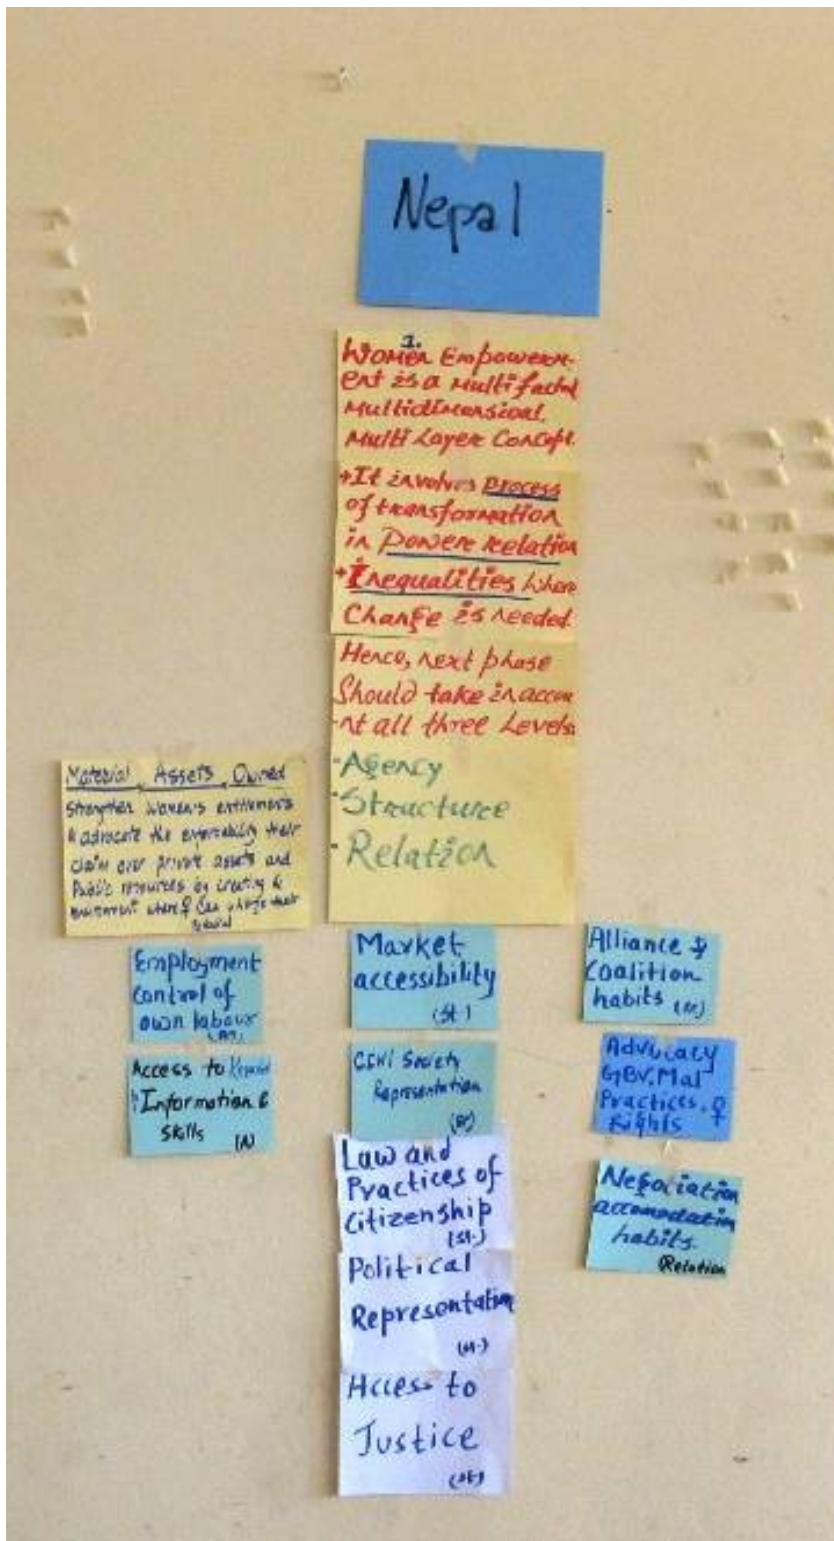 Nepal
1.
Women Empowerm-
ent is a multifacted
Multidimensional,
Multi Layer Concept.
+It involves process
of transformation
in Power Relation
+Inequalities where
Change is needed.
Hence, next phase
Should take in accou
-nt all three Levels
-Agency
-Structure
-Relation
Material Assets Owned
Strengthen women's entitlements
& advocate the their
claim over private assets and
Public resources by creating
where ♀ can their
Employment
Control of
own labour
Access to
Information &
Skills (A)
Market
accessibility
(St.)
Civil Society
Representation
Law and
Practices of
Citizenship
(St.)
Political
Representation
(St.)
Access to
Justice
(St)
Alliance &
Coalition
habits
Advocacy
GBV, Mal
Practices, ♀
Rights
Negociation
accomodation
habits.
Relation